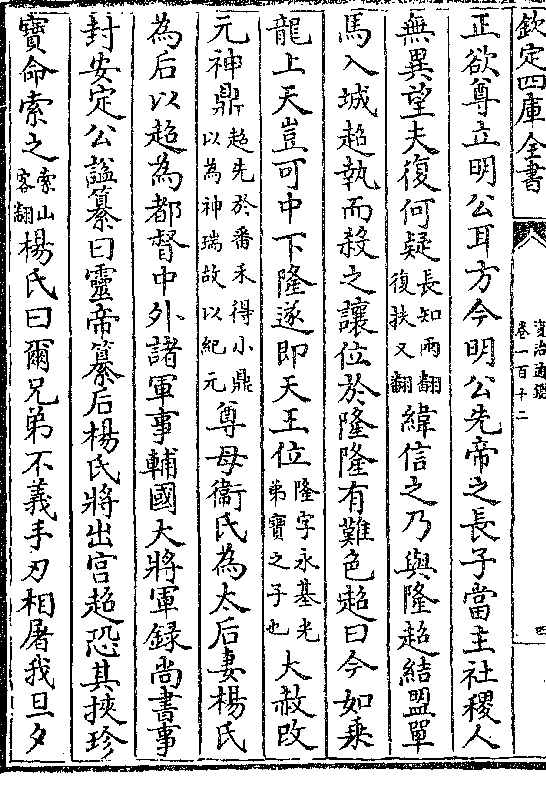 欽定四庫全書
資治通鑑
卷一百十二
四
正欲尊立明公耳方今明公先帝之長子當主社稷人
無異望夫復何疑長知兩翻復扶又翻緯信之乃與隆超結盟單
馬入城超執而殺之讓位於隆隆有難色超曰今如乘
龍上天豈可中下隆遂即天王位隆字永基光弟寶之子也大赦改
元神鼎超先於番禾得小鼎以為神瑞故以紀元尊母衞氏為太后妻楊氏
為后以超為都督中外諸軍事輔國大將軍録尚書事
封安定公諡纂曰靈帝纂后楊氏將出宫超恐其挾珍
寶命索之索山客翻楊氏曰爾兄弟不義手刃相屠我旦夕